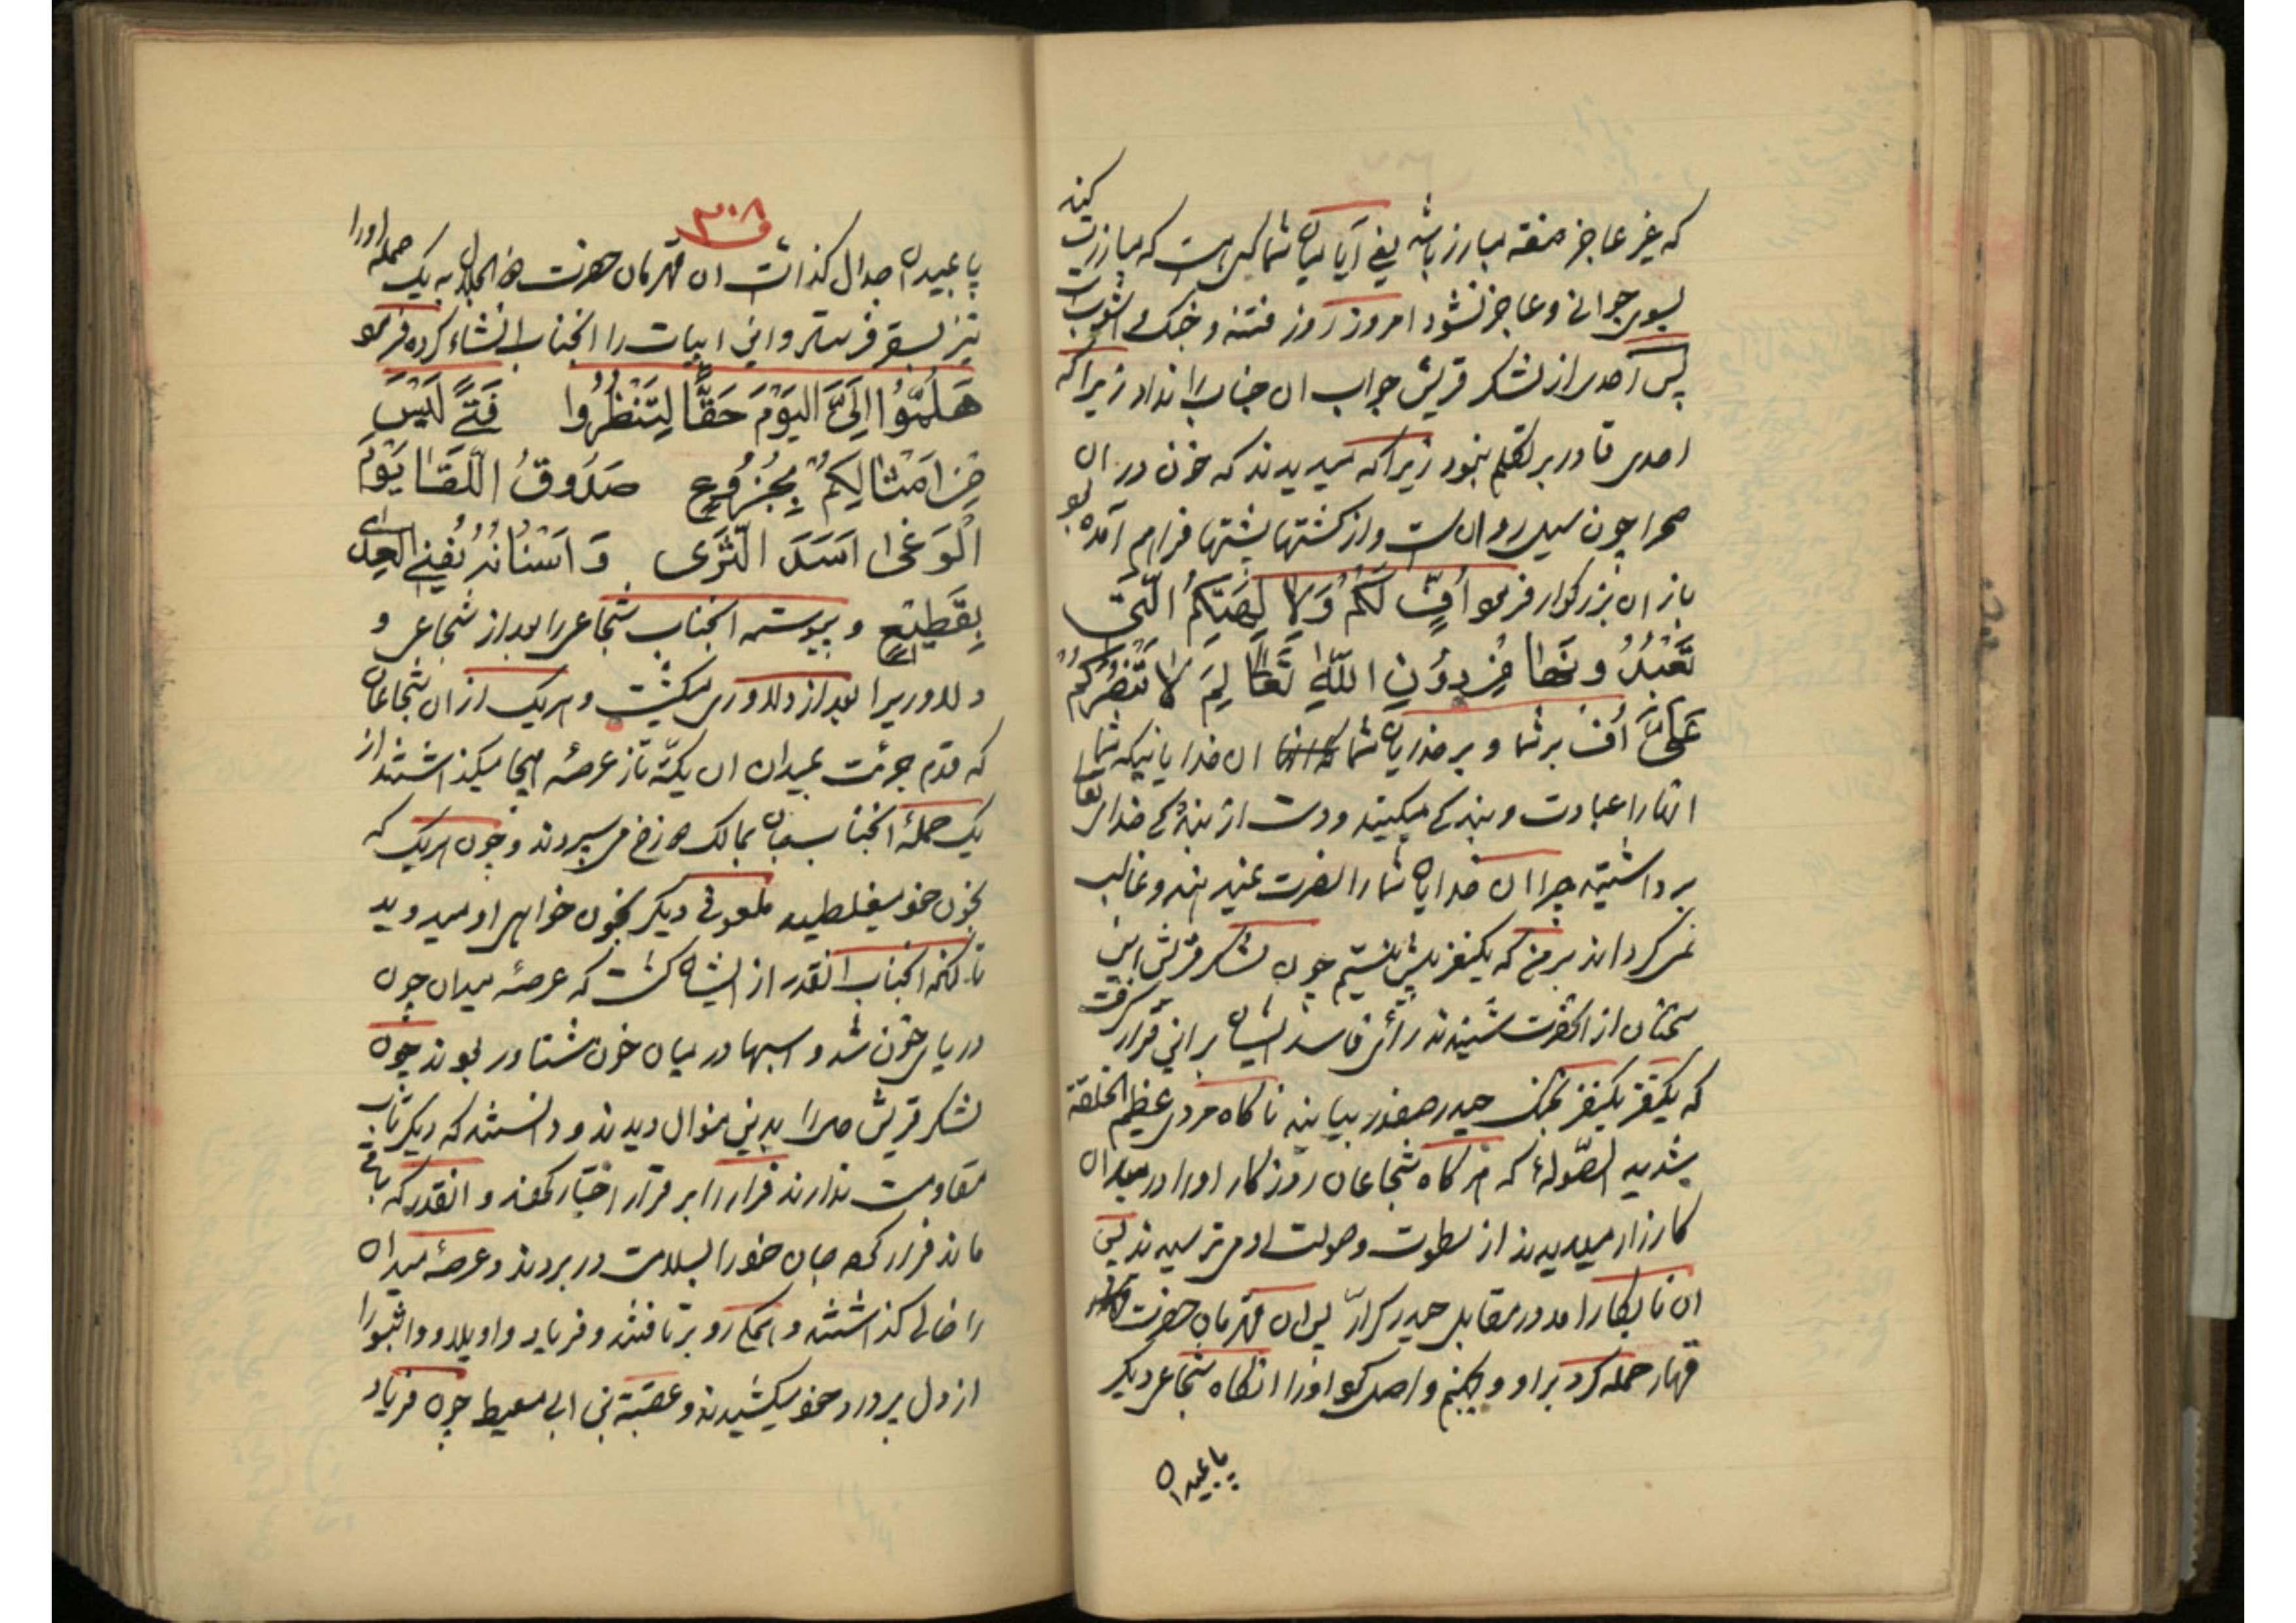 که غیر عاجز منفه مبارز باشد یعنی آیا میان شما کسی هست که مبارزت کند
بسوی جوانی و عاجز نشود امروز روز فتنه و جنک و اشوبست
پس احدی از لشکر قریش جواب ان جناب را نداد زیرا که
احدی قادر بر تکلم نبود زیرا که میدیدند که خون در ان
صحرا چون سیل روان است و از کشتها پشتها فراهم آمده بود
باز ان بزرکوار فرمود أُفٍّ لَكُمْ وَلِالِهَتِكُمُ الَّتی
تَعْبُدُونَها مِنْ دُونِ اللّهِ تَعَالی لِمَ لا تَنْصُرُكُمْ
عَلَیَّ اُف بر شما و بر خدایان شما ان خدایانیکه شما
انها را عبادت و بندکی میکنید و دست از بندکی خدای تعالی
برداشتید چرا ان خدایان شما را نصرت نمیدهند و غالب
نمی کردانند بر من که یکنفر بیش نیستم چون لشکر قریش این
سخنان از انحضرت شنیدند رأی فاسد ایشان بر این قرار گرفت
که یکنفر یکنفر بجنک حیدر صفدر بیایند ناکاه مردی عظیم الخلقة
شدید الصّولهٔ که هرکاه شجاعان روزکار او را در میدان
کارزار میدیدند از سطوت و صولت او میترسیدند پس
ان نابکار امد در مقابل حیدر کرار پس ان قهرمان حضرت
قهار حمله کرد بر او و بجهنم واصل کرد او را انکاه شجاعی دیکر
پا بمیدان
۳۰۸
پا بمیدان جدال کذاشت ان قهرمان حضرت ذو الجلال به یک حمله او را
نیز بسقر فرستاد و این ابیات را انجناب انشاء کرده فرمود
هَلُمُّوا اِلَیَّ الیَوْمَ حَقًّا لِتَنْظُرُوا فَتًى لَیْسَ
مِنْ اَمْثالِكُمْ بِجَزُوعٍ صَدُوقُ اللِّقَا یَوْمَ
الْوَغی اَسَدَ الثَّرَى وَ اَسْنانُهُ یُفْنی العِدَى
بِقَطِیْعٍ و پیوسته انجناب شجاعی را بعد از شجاعی و
دلاوریرا بعد از دلاوری میکشت و هریک از ان شجاعان
که قدم جرئت بمیدان ان یکّه تاز عرصهٔ هیجا میکذاشتند از
یک حملهٔ انجناب جان بمالک دوزخ می سپردند و چون هریک که
بخون خود میغلطید ملعونی دیکر بخون خواهی او میدوید
تا انکه انجناب انقدر از ایشان کشت که عرصهٔ میدان چون
دریای خون شد و اسبها در میان خون شناور بودند چون
لشکر قریش را بدین منوال دیدند و دانستند که دیکر تاب
مقاومت ندارند فرار را بر قرار اختیار نمودند و انقدر که باقی
ماند فرار کرده جان خود را بسلامت در بردند و عرصهٔ میدان
را خالی کذاشتند و همکی رو برتافتند و فریاد واویلا و واثبورا
از دل پر درد خود میکشیدند و عقبة بن ابی معیط چون فریاد